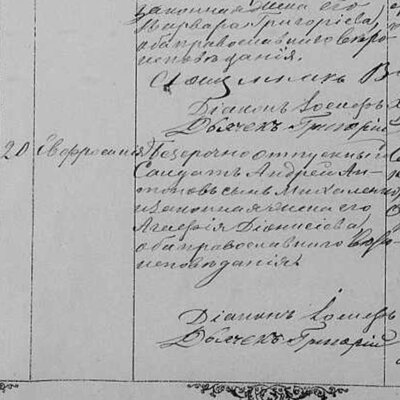 законная жена его
Варвара Григоріева,
оба православнаго вѣро
исповѣданія.
Священникъ В
Діаконъ Іосифъ
Дьячекъ Григорій
20 Евфросинія Безсрочно отпускный
Солдатъ Андрей Ан-
тоновъ сынъ Михаленко
и законная жена его
Агафія Діонисіева,
оба православнаго вѣро
исповѣданія.
Діаконъ Іосифъ
Дьячекъ Григорій